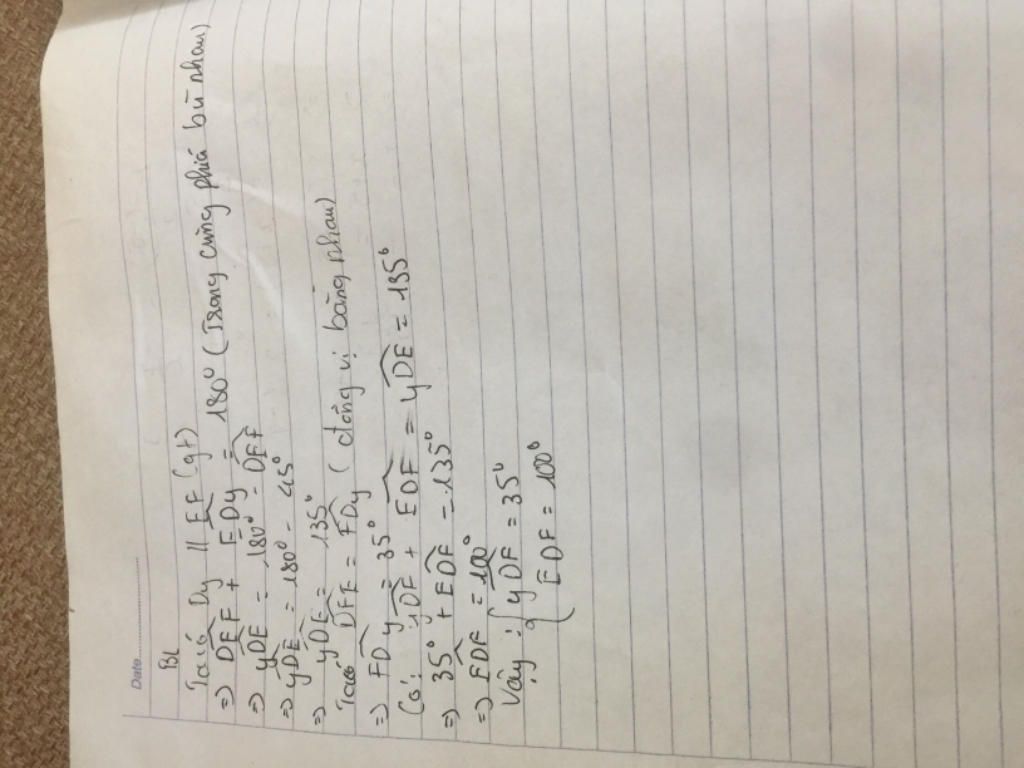 Date
BL
Ta có Dy // EF (gt)
=> DEF + EDy = 180° (Trong cùng phía bù nhau)
=> yDE = 180° - DEF
=> yDE = 180° - 45°
=> yDE = 135°
Ta có DFE = FDy (đồng vị bằng nhau)
=> FDy = 35°
Có: yDF + EDF = yDE = 135°
=> 35° + EDF = 135°
=> EDF = 100°
Vậy: { yDF = 35°
EDF = 100°